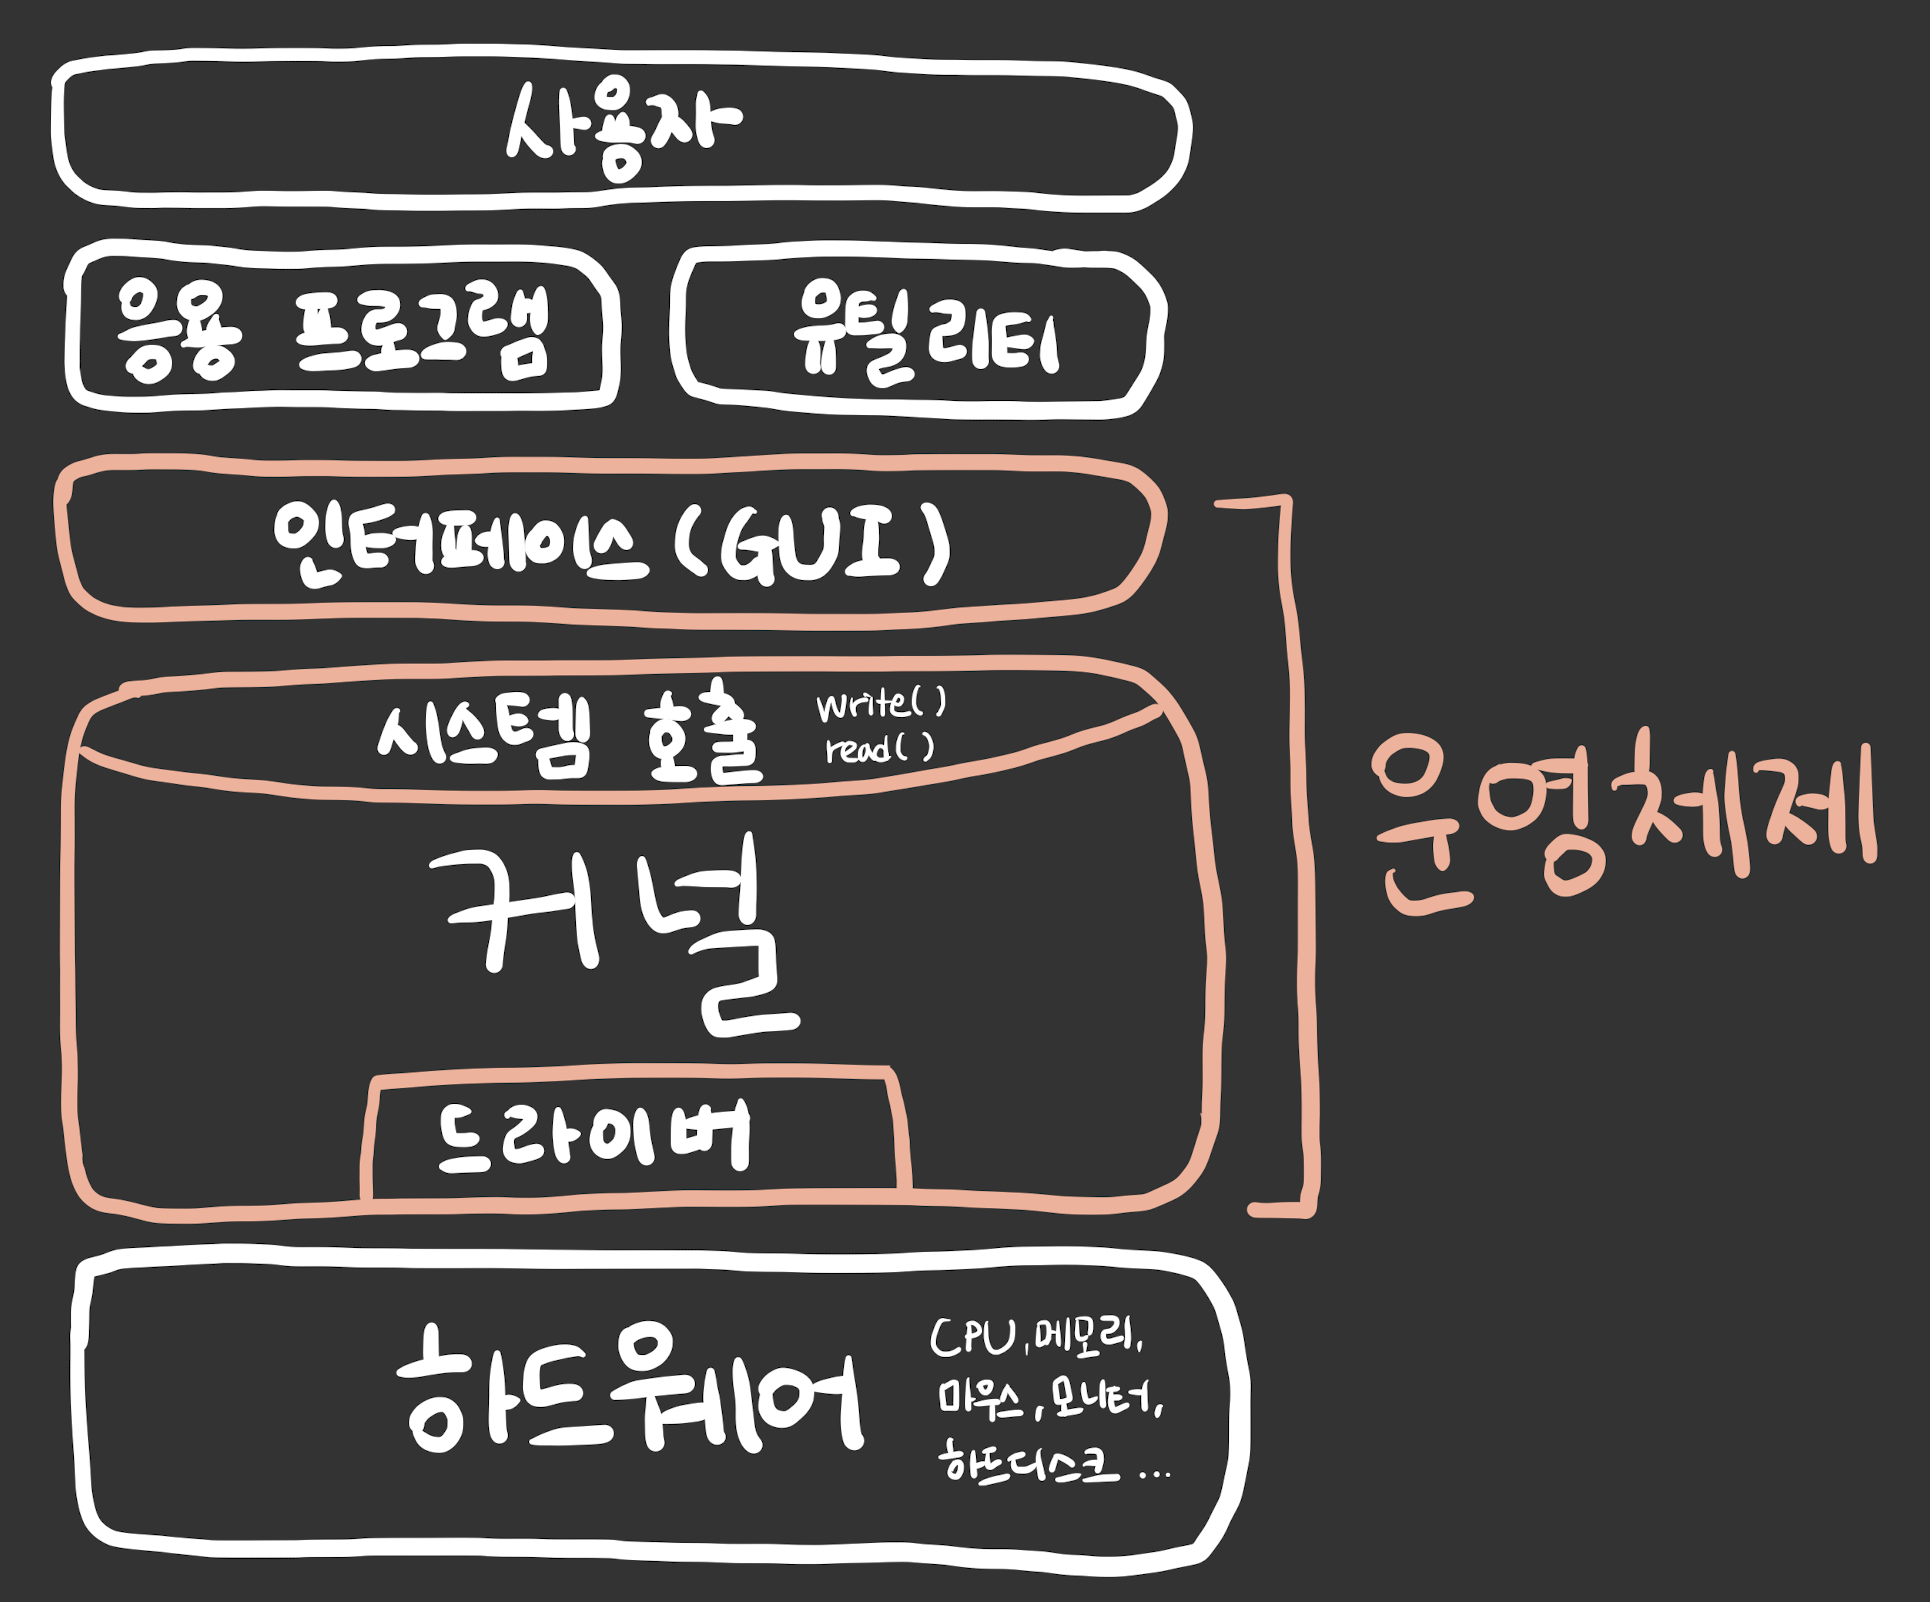 사용자
응용 프로그램
유틸리티
인터페이스 (GUI)
시스템 호출
write()
read()
커널
드라이버
운영체제
하드웨어
CPU, 메모리,
마우스, 모니터,
하드디스크 ...